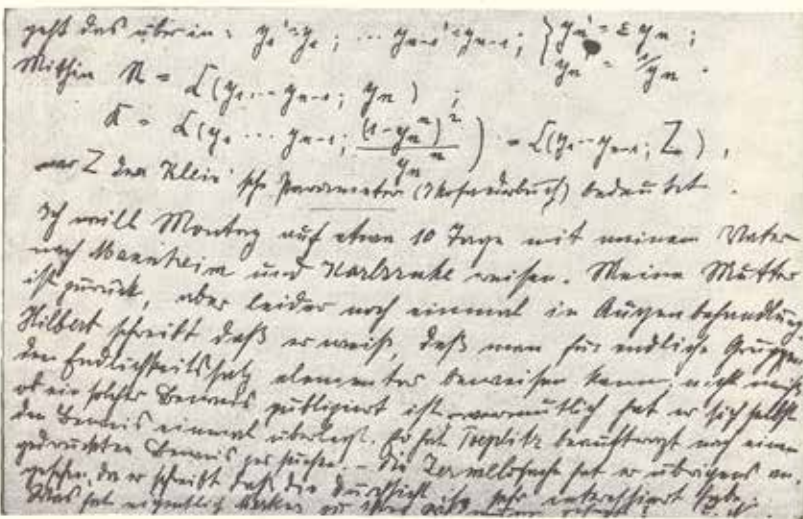 geht das über in: y₁' = y₁; ... yₙ₋₁' = yₙ₋₁; { yₙ' = εyₙ; yₙ' = 1/yₙ.
Mithin R = L(y₁...yₙ₋₁; yₙ);
K = L(y₁...yₙ₋₁; (1-yₙⁿ)²/yₙⁿ) = L(y₁...yₙ₋₁; Z),
wo Z den Klein'sche Parameter (Ikosaederbuch) bedeutet.
Ich will Montag auf etwa 10 Tage mit meinem Vater
nach Mannheim und Karlsruhe reisen. Meine Mutter
ist zurück, aber leider noch einmal in Augenbehandlung.
Hilbert schreibt daß er weiß, daß man für endliche Gruppen
den Endlichkeitssatz elementar beweisen kann, nicht weiß
ob ein solcher Beweis publiziert ist – vermutlich hat er sich selbst
den Beweis einmal überlegt. Er hat Toeplitz beauftragt nach einem
gedruckten Beweis zu suchen. – Die hat er übrigens an-
gesehen, da er schreibt daß die Durchsicht ihn sehr interessiert habe.
Was hat eigentlich